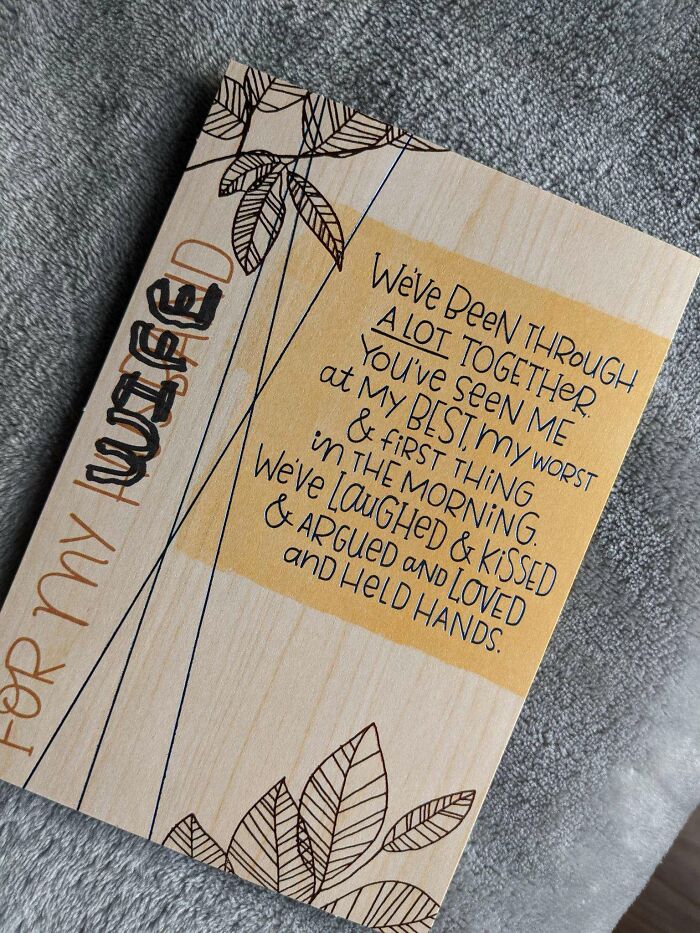 FOR MY HUSBAND
WIFE
We've Been THROUGH
A LOT TOGETHER.
You've seen ME
at MY BEST, my WORST
& fiRST THiNG
in THE MORNING.
We've Laughed & KiSSED
& ARGUED AND LOVED
and HeLD HANDS.